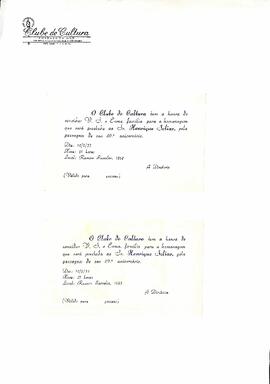 Clube de Cultura
O Clube de Cultura tem a honra de
convidar V. S. e Exma. família para a homenagem
que será prestada ao Sr. Henrique Scliar, pela
passagem de seu 80º aniversário.
Dia:
Hora: 21 horas
Local: Ramiro Barcelos, 1853
A Diretoria
(Válido para pessoas)
O Clube de Cultura tem a honra de
convidar V. S. e Exma. família para a homenagem
que será prestada ao Sr. Henrique Scliar, pela
passagem de seu aniversário.
Dia:
Hora: 21 horas
Local: Ramiro Barcelos, 1853
A Diretoria
(Válido para pessoas)